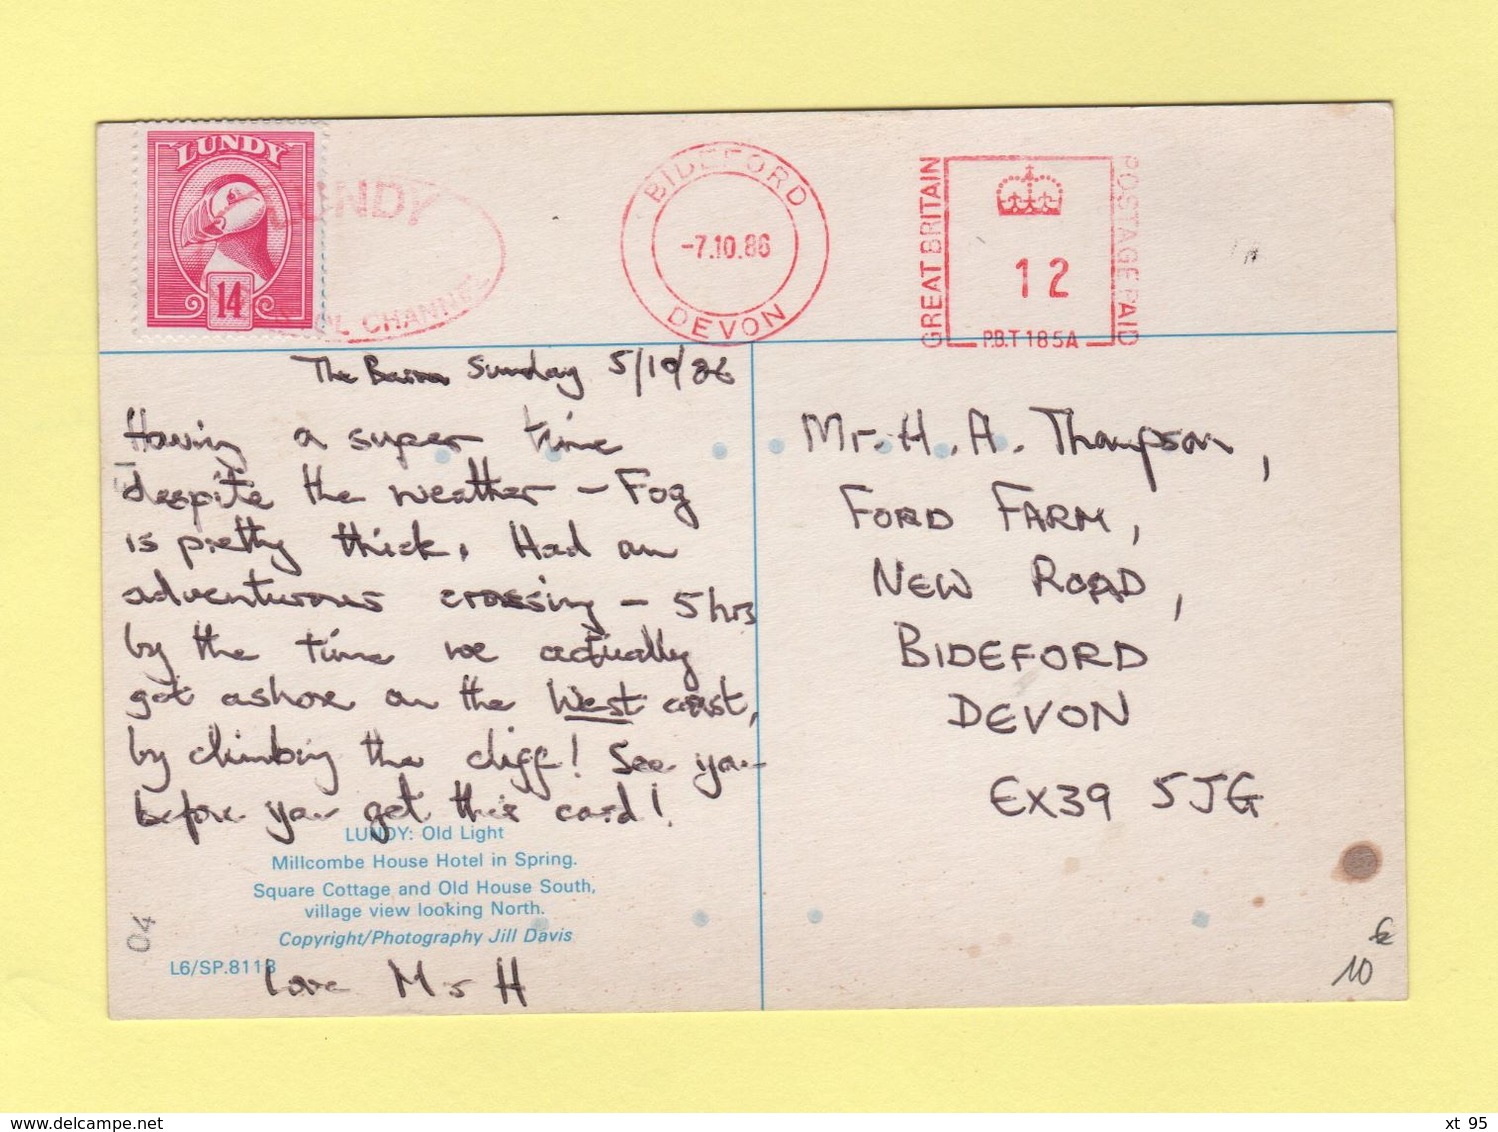 LUNDY
14
LUNDY
CHANNEL
BIDEFORD
-7.10.86
DEVON
GREAT BRITAIN
12
P.B.T 185A
POSTAGE PAID
The Barn Sunday 5/10/86
Having a super time
despite the weather – Fog
is pretty thick. Had an
adventurous crossing – 5 hrs
by the time we actually
got ashore on the West coast,
by climbing the cliff! See you
before you get this card!
LUNDY: Old Light
Millcombe House Hotel in Spring.
Square Cottage and Old House South,
village view looking North.
Copyright/Photography Jill Davis
L6/SP.8113
Love M & H
04
Mr. H. A. Thompson,
FORD FARM,
NEW ROAD,
BIDEFORD
DEVON
EX39 5JG
10
delcampe.net
xt 95